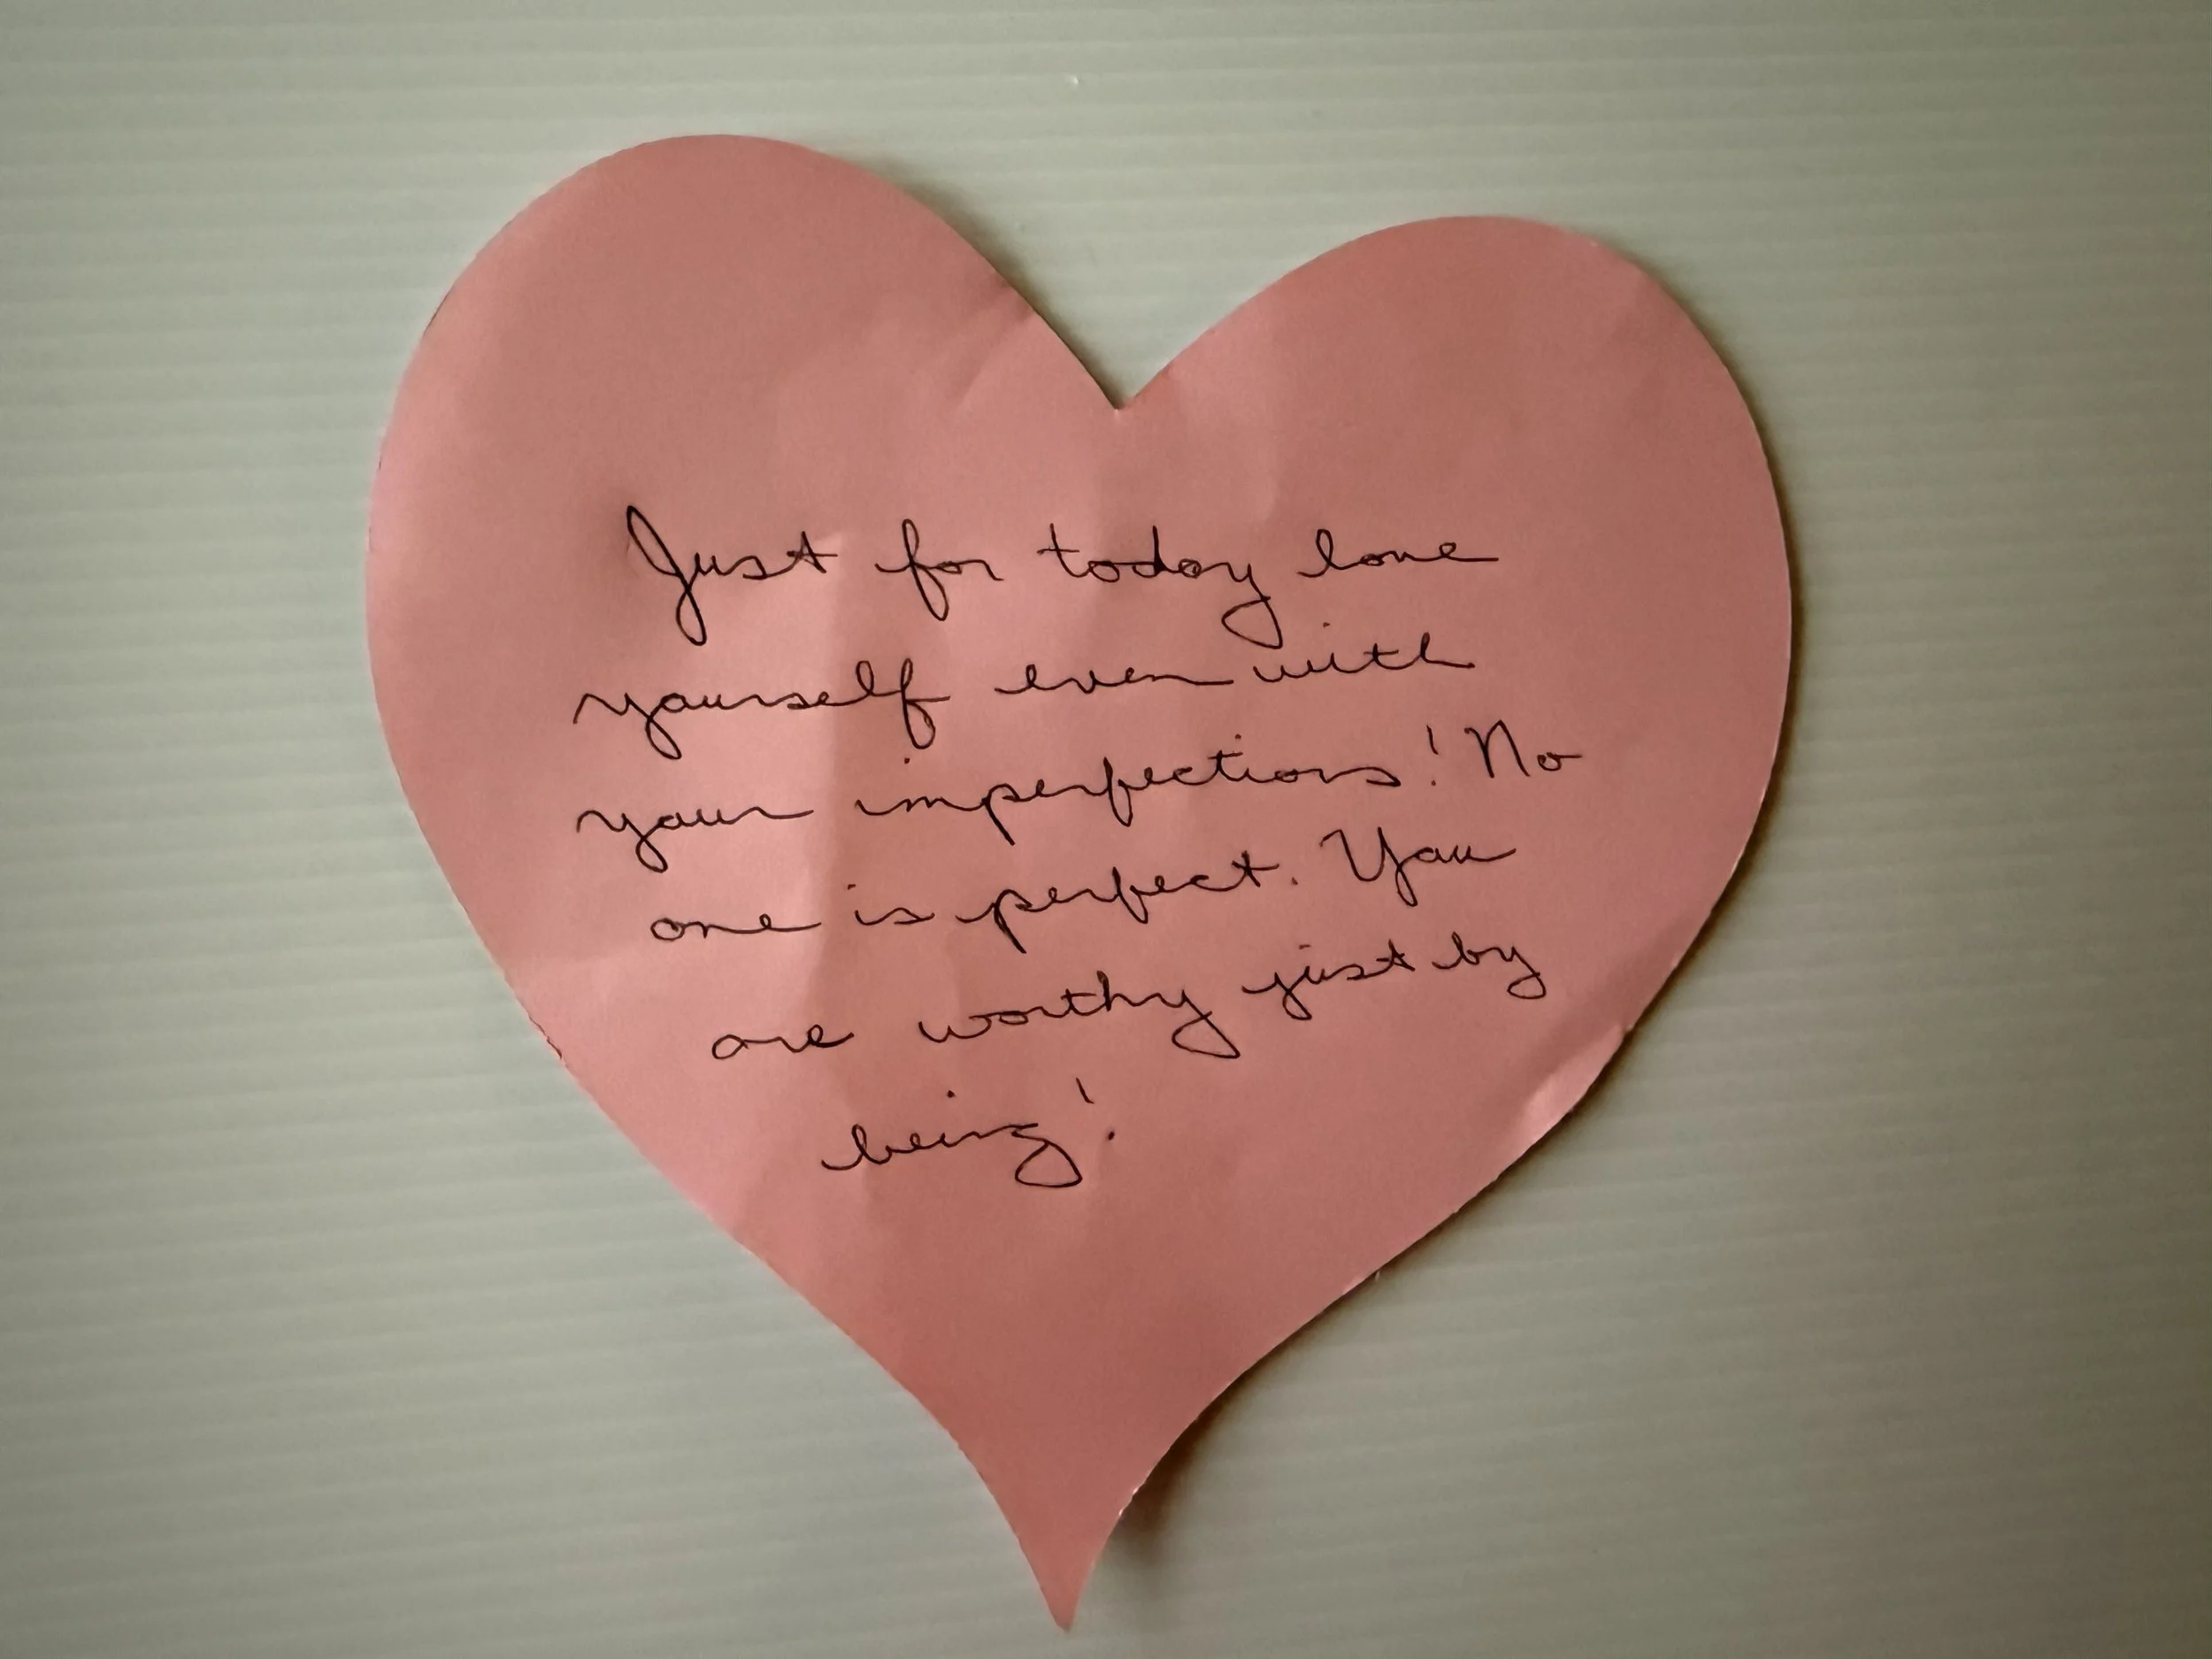 Just for today love
yourself even with
your imperfections! No
one is perfect. You
are worthy just by
being!